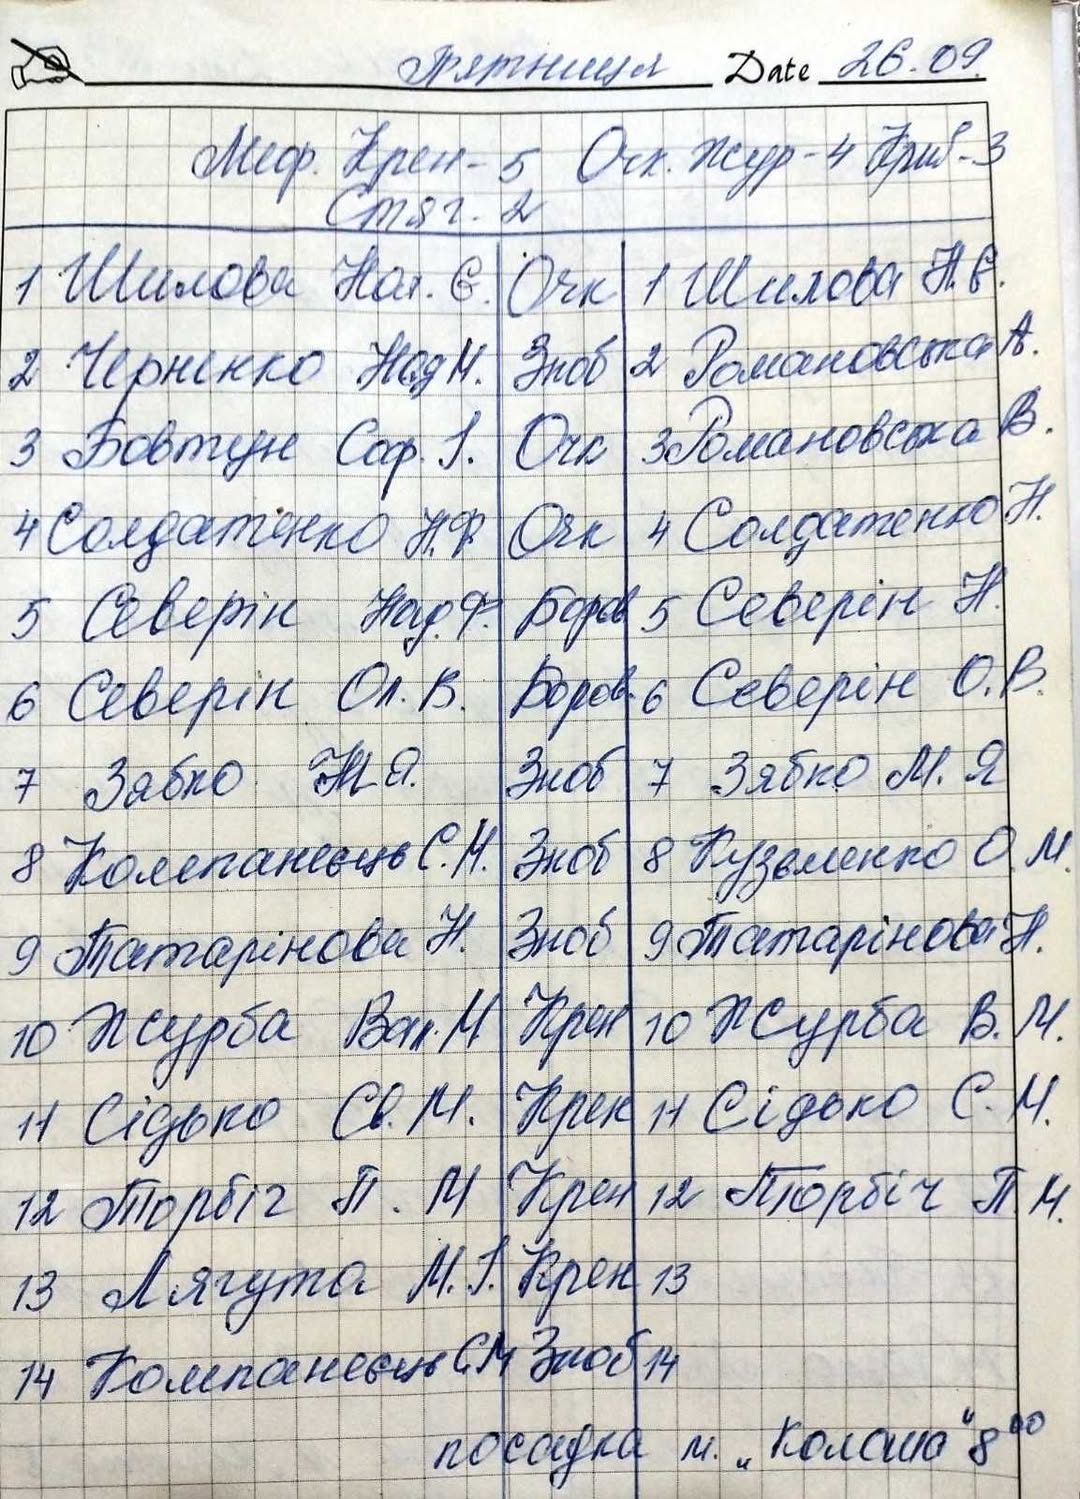 П'ятниця Date 26.09.
Меф. Крен - 5 Очк. Жур - 4 Криб - 3
Стяг. 2
1 Шилова Нат. Є. Очк 1 Шилова Н.Є.
2 Черненко Над М. Зноб 2 Романовська А.
3 Бовтун Соф. І. Очк 3 Романовська В.
4 Солдатенко Н.Ф Очк 4 Солдатенко Н.
5 Северін Над. Ф. Боров 5 Северін Н.
6 Северін Ол. В. Боров. 6 Северін О.В.
7 Зябко Я. Зноб 7 Зябко М. Я
8 Компанеєць С.М. Зноб 8 Кузьменко О.М.
9 Татарінова Н. Зноб 9 Татарінова Н.
10 Журба Вал. М Крен 10 Журба В. М.
11 Сідько Св. М. Крен 11 Сідько С. М.
12 Торбіч П. М Крен 12 Торбіч П.М.
13 Лягута М. І. Крен 13
14 Компанеєць С.М Зноб 14
посадка м. „ 8⁰⁰